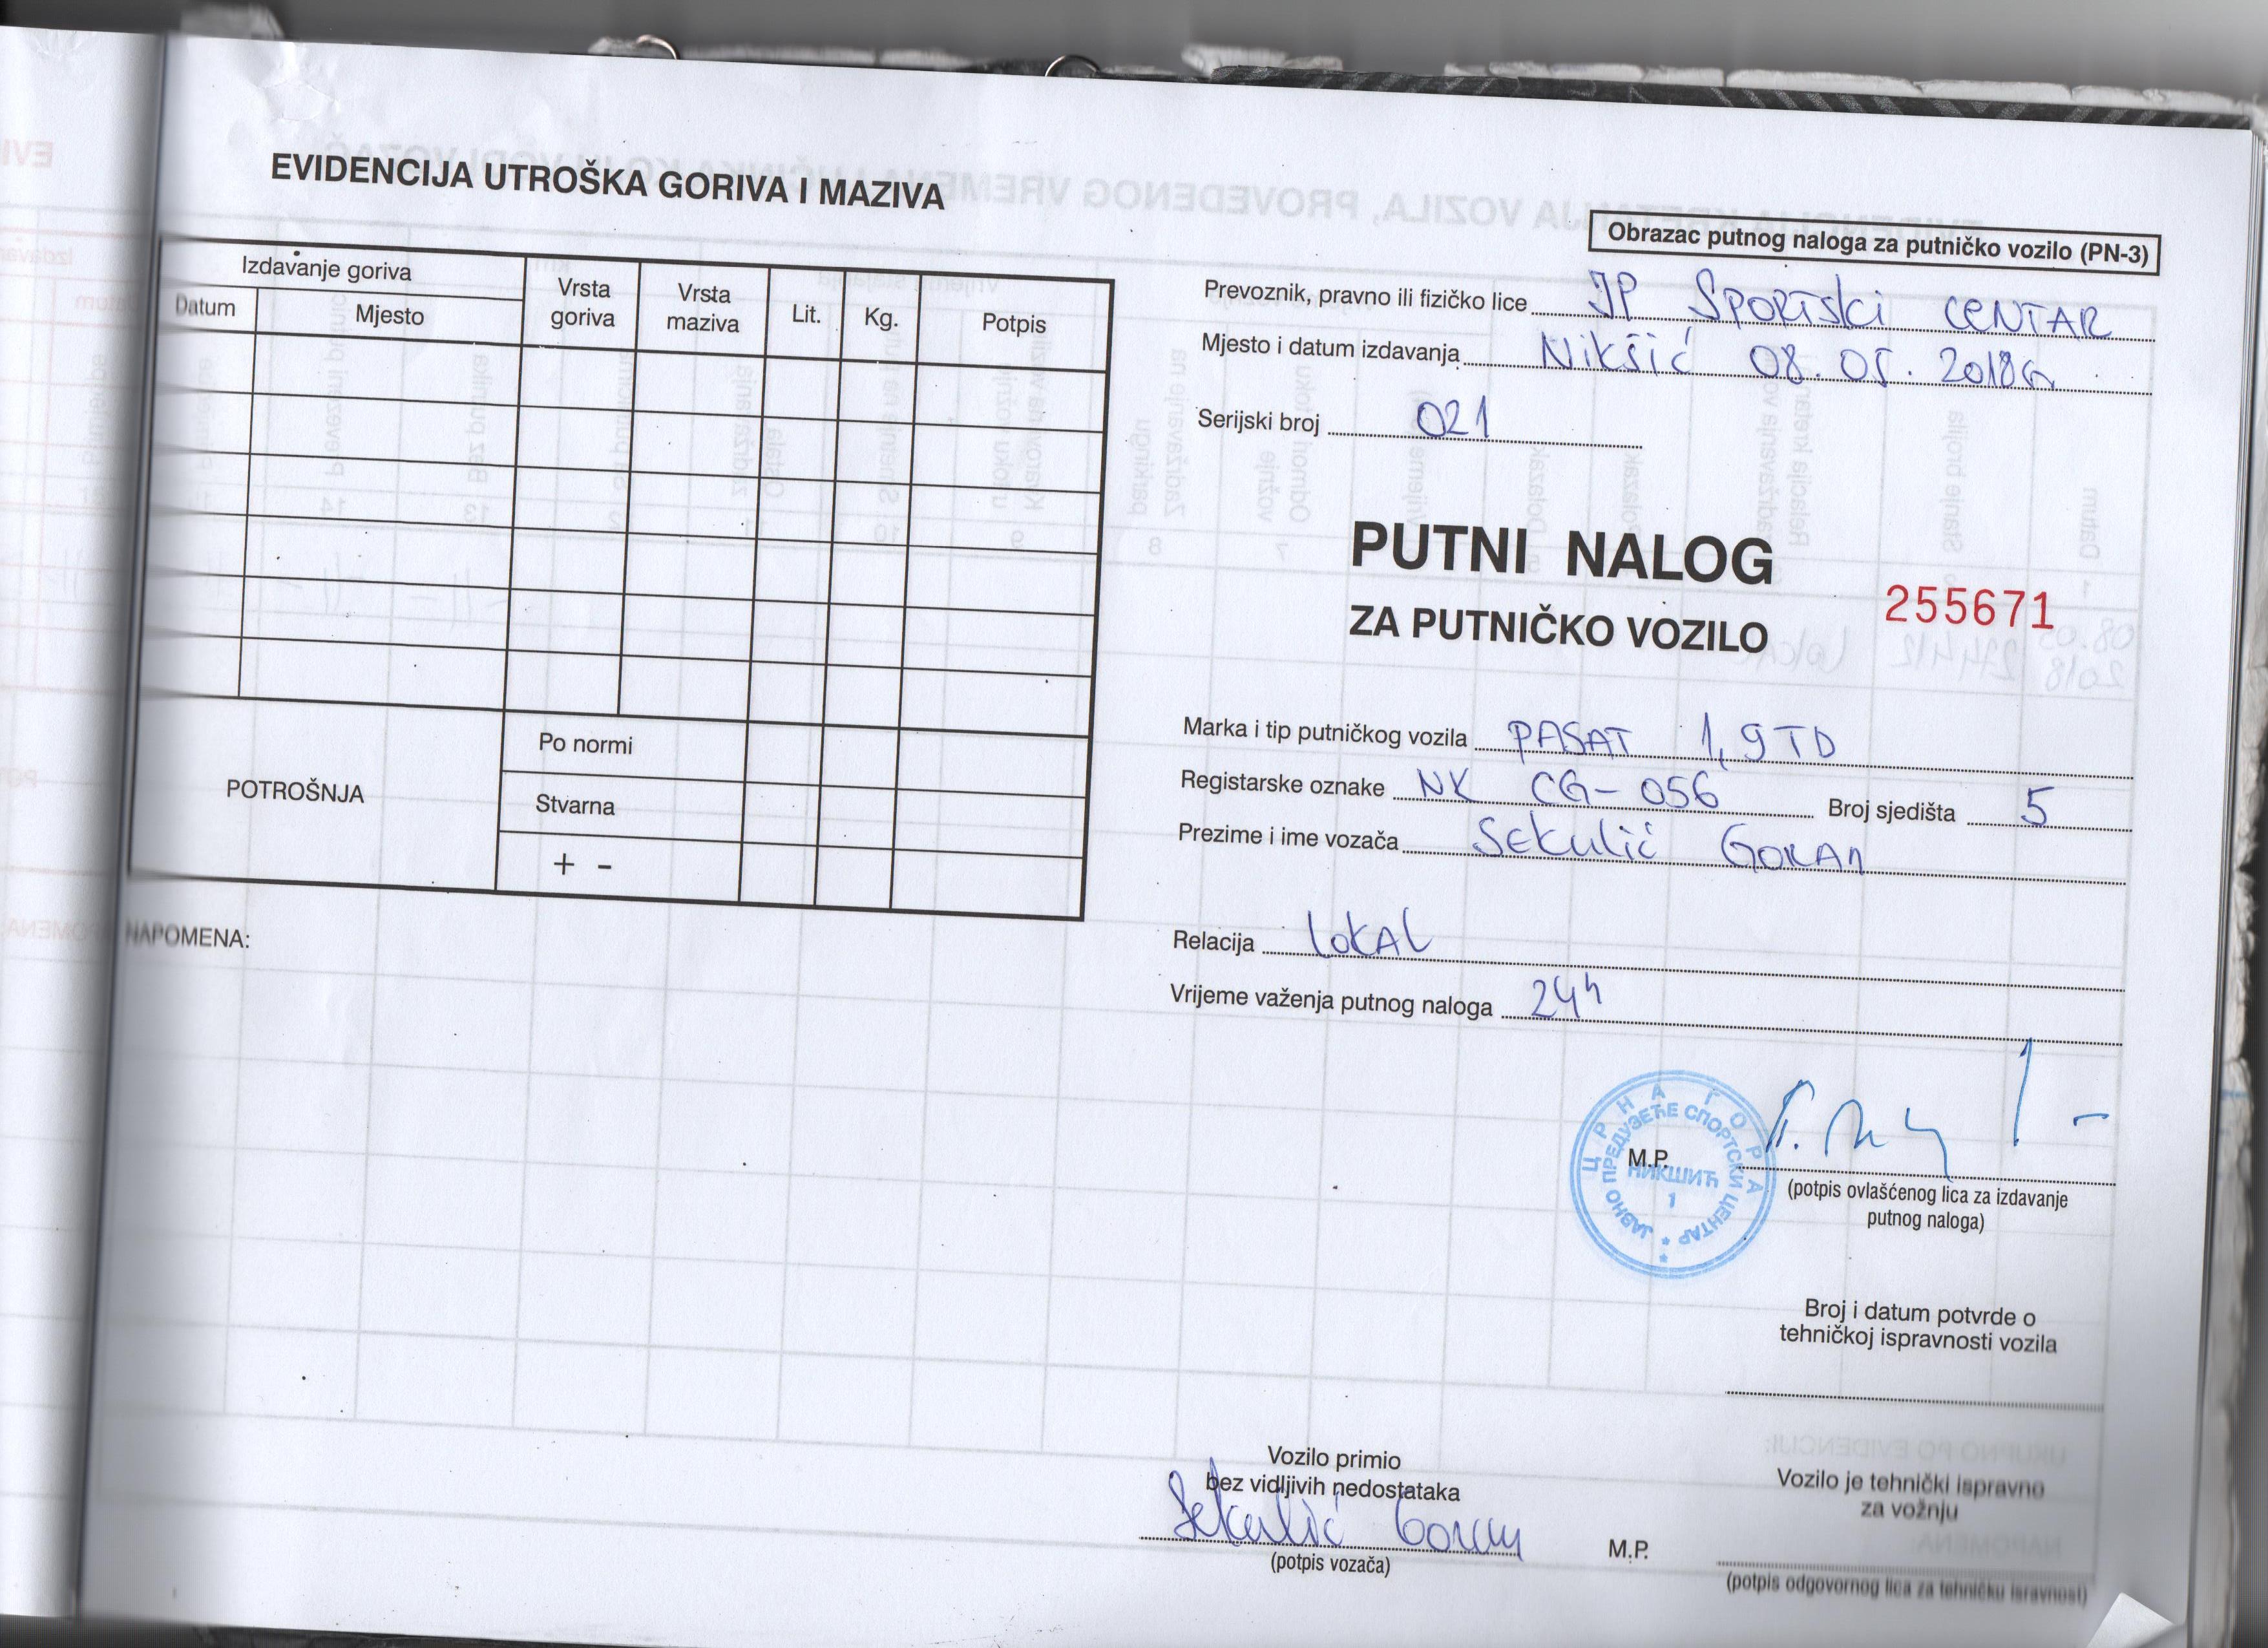 EVIDENCIJA UTROŠKA GORIVA I MAZIVA
Izdavanje goriva
Datum
Mjesto
Vrsta goriva
Vrsta maziva
Lit.
Kg.
Potpis
POTROŠNJA
Po normi
Stvarna
+ -
NAPOMENA:
Obrazac putnog naloga za putničko vozilo (PN-3)
Prevoznik, pravno ili fizičko lice JP SPORTSKI CENTAR
Mjesto i datum izdavanja Nikšić 08.05.2018G
Serijski broj 021
PUTNI NALOG
ZA PUTNIČKO VOZILO
255671
Marka i tip putničkog vozila PASAT 1,9 TD
Registarske oznake NK CG-056 Broj sjedišta 5
Prezime i ime vozača Sekulić Goran
Relacija lokal
Vrijeme važenja putnog naloga 24h
ЦРНА ГОРА
ЈАВНО ПРЕДУЗЕЋЕ СПОРТСКИ ЦЕНТАР
НИКШИЋ
1
M.P.
(potpis ovlašćenog lica za izdavanje
putnog naloga)
Broj i datum potvrde o
tehničkoj ispravnosti vozila
Vozilo primio
bez vidljivih nedostataka
Sekulić Goran
(potpis vozača)
M.P.
Vozilo je tehnički ispravno
za vožnju
(potpis odgovornog lica za tehničku isravnost)